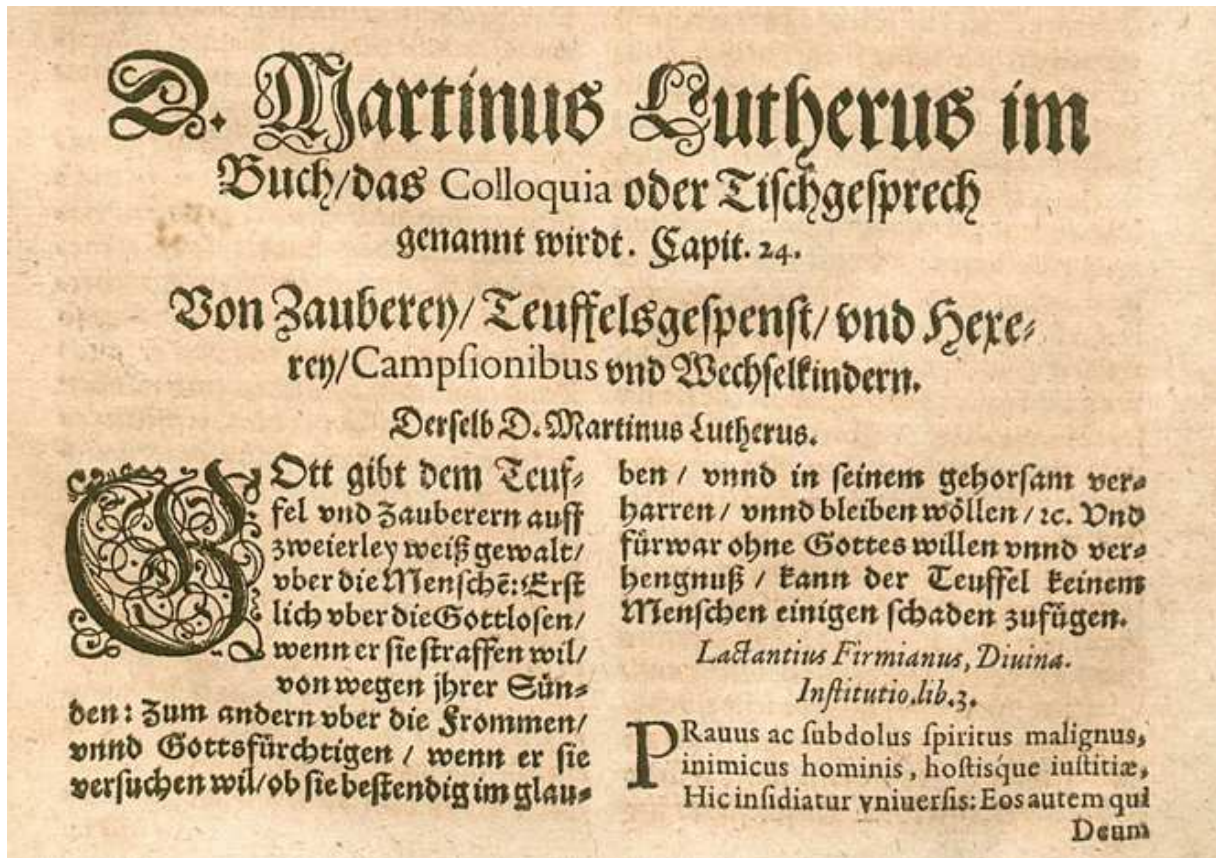 D. Martinus Lutherus im
Buch/das Colloquia oder Tischgesprech
genannt wirdt. Capit. 24.
Von Zauberey/ Teuffelsgespenst/ vnd Hexe-
rey/Campsionibus vnd Wechselkindern.
Derselb D. Martinus Lutherus.
GOtt gibt dem Teuf-
fel vnd Zauberern auff
zweierley weiß gewalt/
vber die Menschẽ: Erst
lich vber die Gottlosen/
wenn er sie straffen wil/
von wegen jhrer Sün-
den: Zum andern vber die Frommen/
vnnd Gottsfürchtigen / wenn er sie
versuchen wil/ob sie bestendig im glau-
ben / vnnd in seinem gehorsam ver-
harren/ vnnd bleiben wöllen / ꝛc. Vnd
fürwar ohne Gottes willen vnnd ver-
hengnuß / kann der Teuffel keinem
Menschen einigen schaden zufügen.
Lactantius Firmianus, Diuina.
Institutio.lib.3.
PRauus ac subdolus spiritus malignus,
inimicus hominis, hostisque iustitiæ,
Hic insidiatur vniuersis: Eos autem qui
Deum